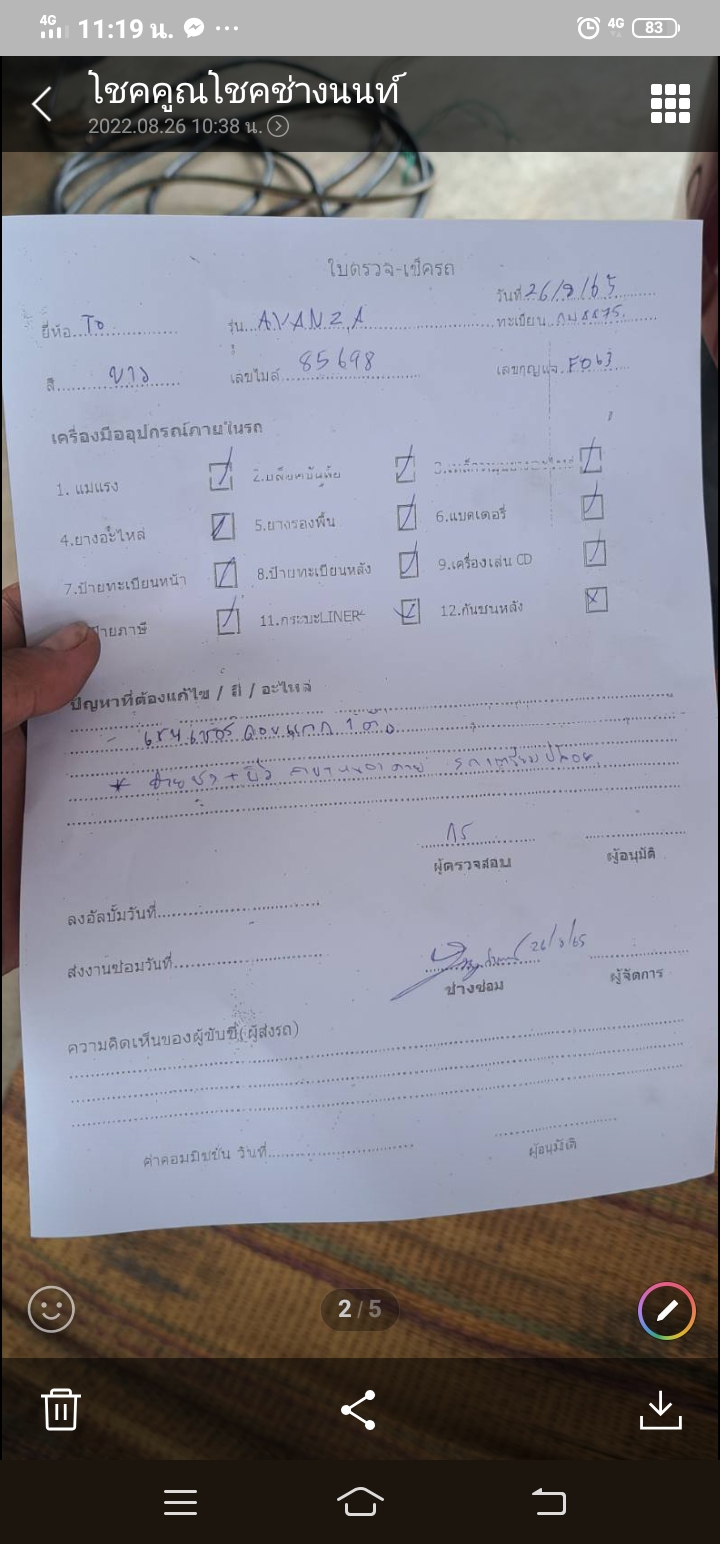 4G 11:19 น. ... 4G 83
โชคคูณโชคช่างนนท์
2022.08.26 10:38 น.
ใบตรวจ-เช็ครถ
วันที่ 26/8/65
ยี่ห้อ To รุ่น AVANZA ทะเบียน
สี ขาว เลขไมล์ 85698 เลขกุญแจ F063
เครื่องมืออุปกรณ์ภายในรถ
1. แม่แรง 2. 3.
4.ยางอะไหล่ 5.ยางรองพื้น 6.แบตเตอรี่
7.ป้ายทะเบียนหน้า 8.ป้ายทะเบียนหลัง 9.เครื่องเล่น CD
ป้ายภาษี 11.กระบะLINER 12.กันชนหลัง
ปัญหาที่ต้องแก้ไข / สี / อะไหล่
- เซนเซอร์
*
ผู้ตรวจสอบ ผู้อนุมัติ
ลงอัลบั้มวันที่
26/8/65
ส่งงานซ่อมวันที่ ช่างซ่อม ผู้จัดการ
ความคิดเห็นของผู้ขับขี่(ผู้ส่งรถ)
ค่าคอมมิชชั่น วันที่ ผู้อนุมัติ
2 / 5